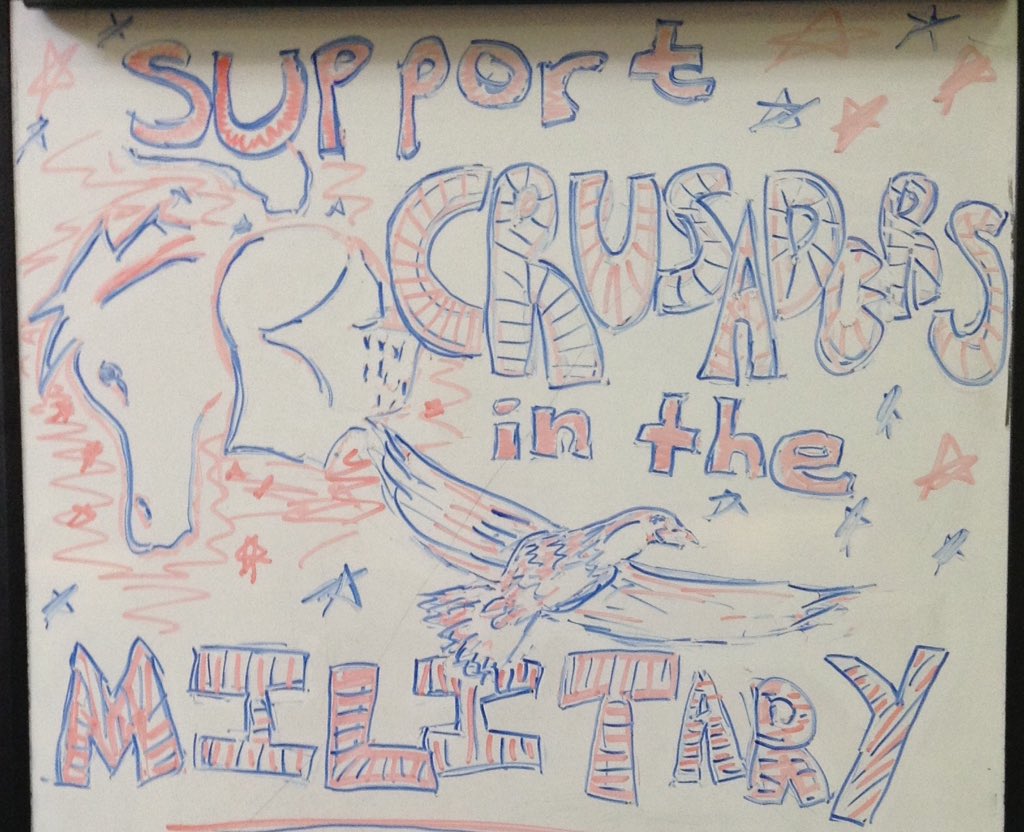 support
CRUSADERS
in the
MILITARY